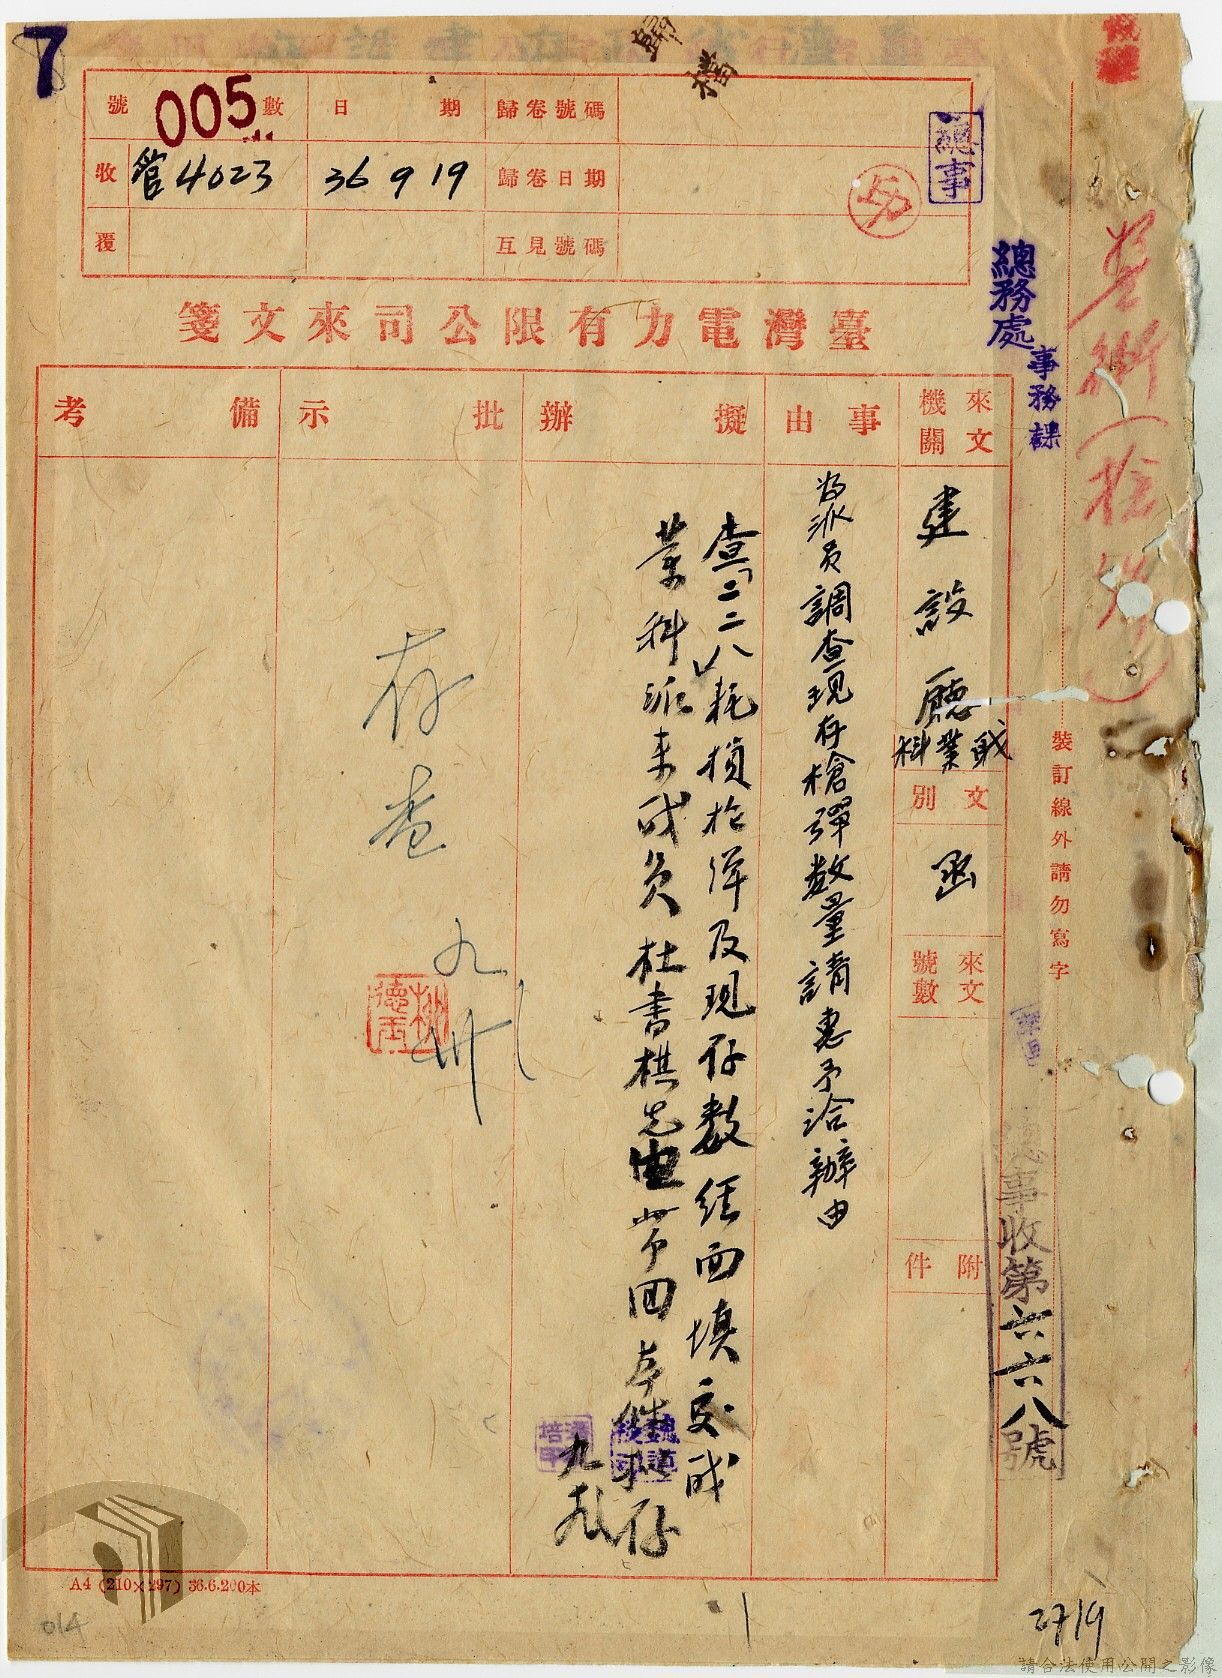 7
歸檔
號數 005
日期
歸卷號碼
收 管4023
36 9 19
歸卷日期
覆
互見號碼
總事
臺灣電力有限公司來文箋
總務處
事務課
來文機關
事由
擬辦
批示
備考
建設廳
職業科
文別
函
來文號數
附件
為派員調查現存槍彈數量請惠予洽辦由
查「二二八」耗損槍彈及現存數經面填交職
業科派來職員杜書棋先生帶回本件擬存
存查
裝訂線外請勿寫字
總事收第六六八號
A4 (210×297) 36.6.200本
014
27/9
請合法使用公開之影像